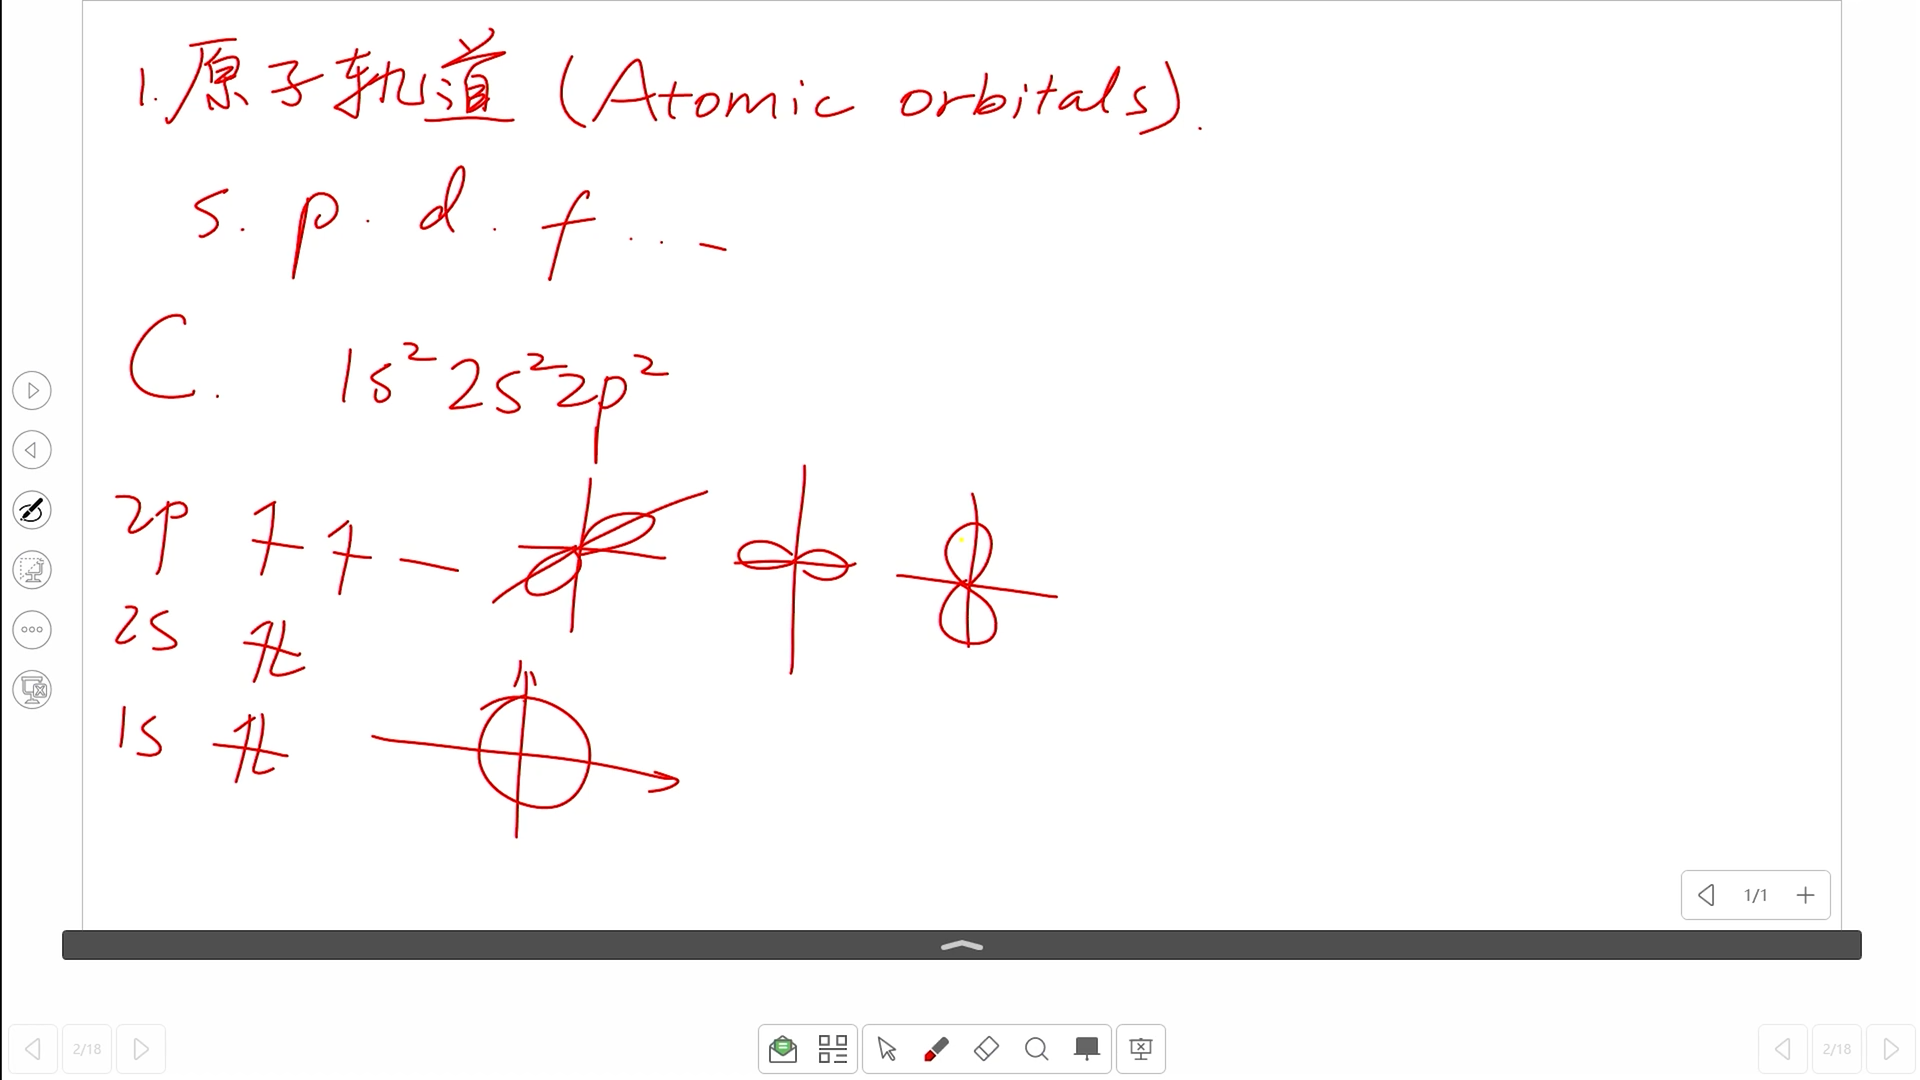 1.原子轨道 (Atomic orbitals).
s. p. d. f ...
C. 1s² 2s² 2p²
2p
2s
1s
1/1
2/18
2/18